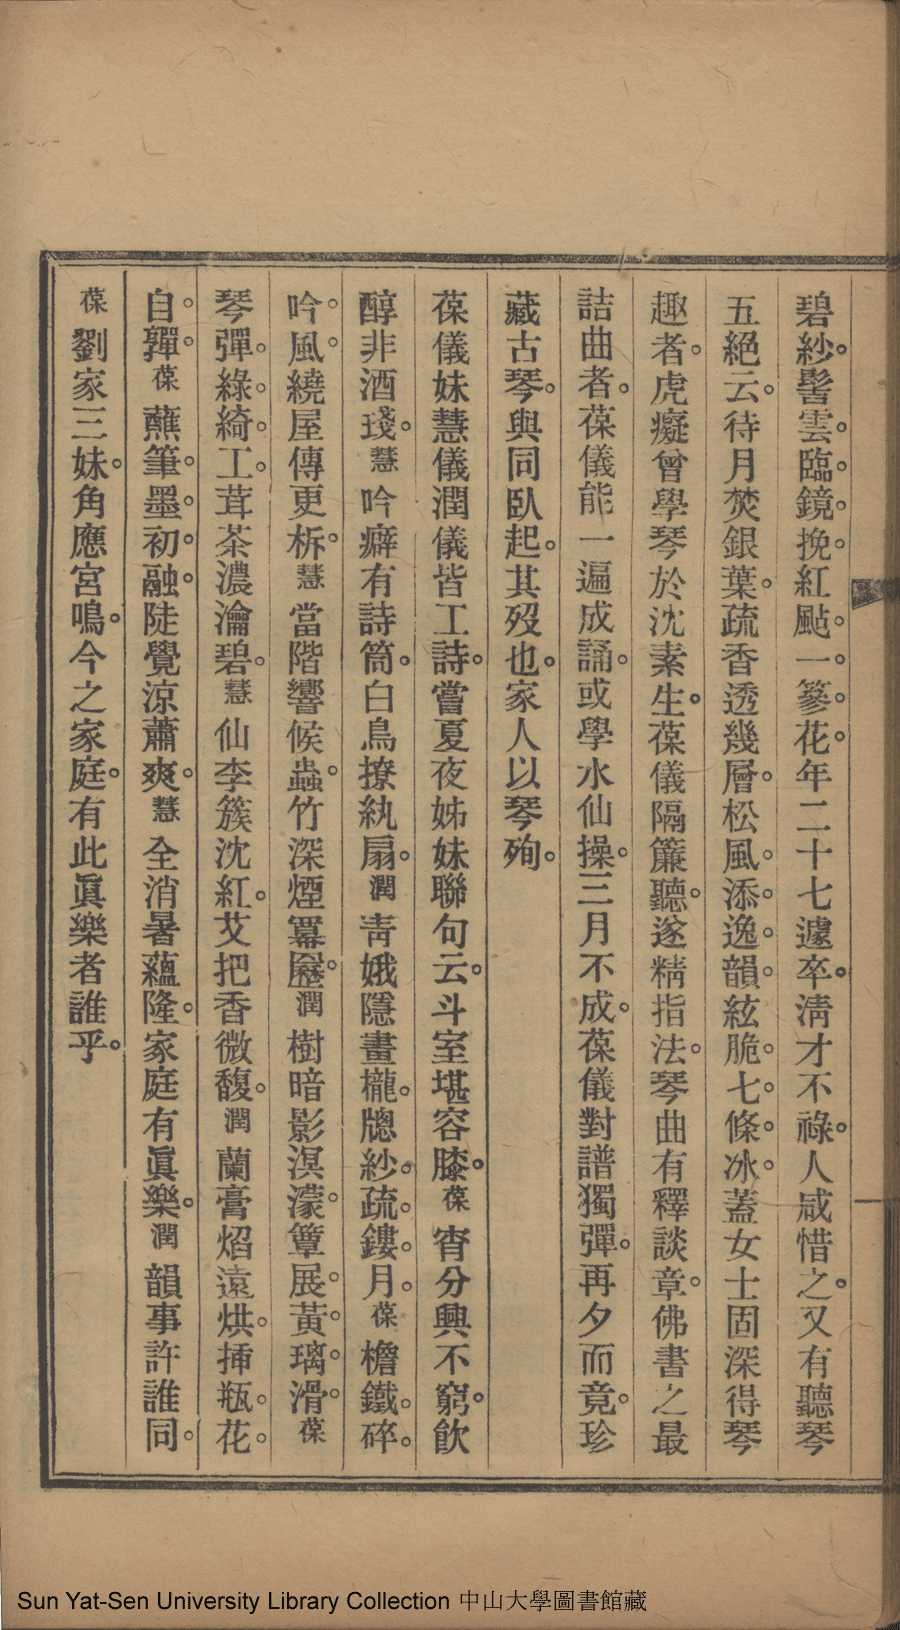 碧紗髻雲臨鏡挽紅颭一篸花年二十七遽卒淸才不祿人咸惜之又有聽琴
五絕云待月焚銀葉疏香透幾層松風添逸韻絃脆七條冰蓋女士固深得琴
趣者虎癡曾學琴於沈素生葆儀隔簾聽遂精指法琴曲有釋談章佛書之最
詰曲者葆儀能一遍成誦或學水仙操三月不成葆儀對譜獨彈再夕而竟珍
藏古琴與同臥起其歿也家人以琴殉
葆儀妹慧儀潤儀皆工詩嘗夏夜姊妹聯句云斗室堪容膝葆宵分興不窮飮
醇非酒琖慧吟癖有詩筒白鳥撩紈扇潤靑娥隱畫櫳牕紗疏鏤月葆檐鐵碎
吟風繞屋傳更柝慧當階響候蟲竹深煙羃䍥潤樹暗影溟濛簟展黃璃滑葆
琴彈綠綺工茸茶濃瀹碧慧仙李簇沈紅艾把香微馥潤蘭膏焰遠烘揷瓶花
自嚲葆蘸筆墨初融陡覺涼蕭爽慧全消暑蘊隆家庭有眞樂潤韻事許誰同
葆劉家三妹角應宮鳴今之家庭有此眞樂者誰乎
Sun Yat-Sen University Library Collection 中山大學圖書館藏